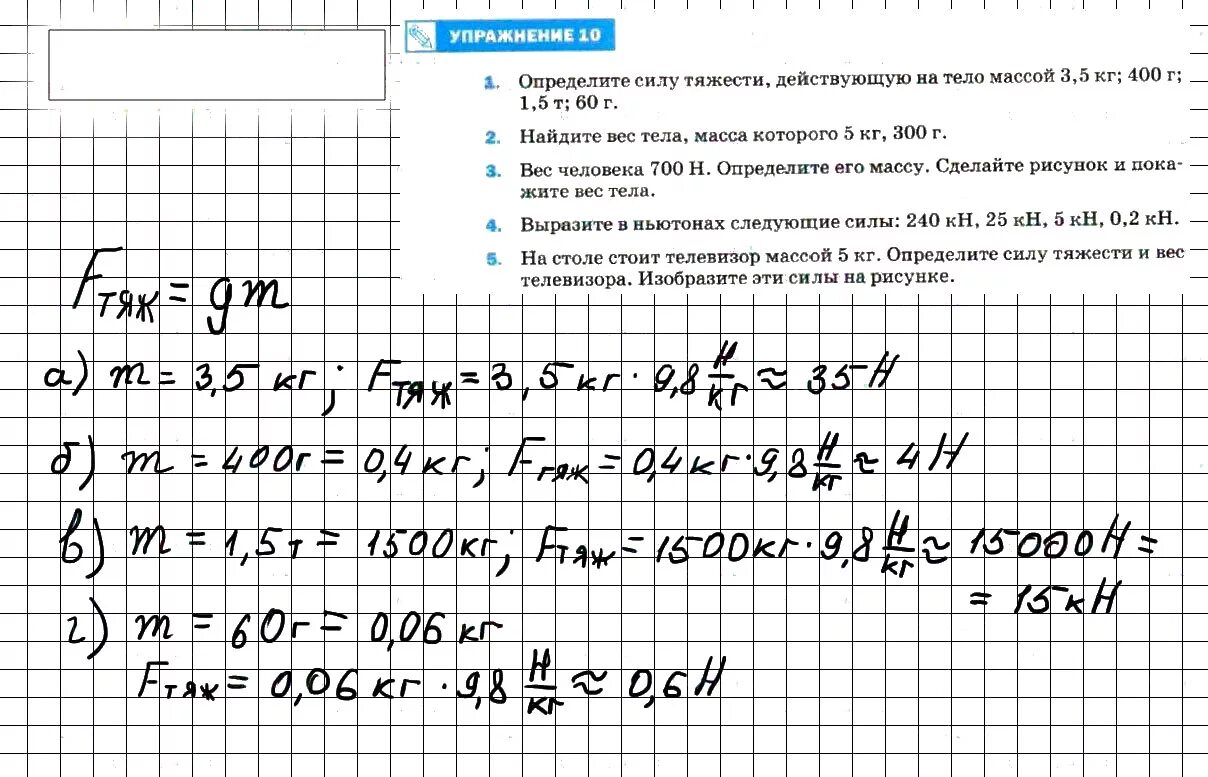 УПРАЖНЕНИЕ 10
1. Определите силу тяжести, действующую на тело массой 3,5 кг; 400 г;
1,5 т; 60 г.
2. Найдите вес тела, масса которого 5 кг, 300 г.
3. Вес человека 700 Н. Определите его массу. Сделайте рисунок и пока-
жите вес тела.
4. Выразите в ньютонах следующие силы: 240 кН, 25 кН, 5 кН, 0,2 кН.
5. На столе стоит телевизор массой 5 кг. Определите силу тяжести и вес
телевизора. Изобразите эти силы на рисунке.
Fтяж = gm
а) m = 3,5 кг; Fтяж = 3,5 кг · 9,8 Н/кг ≈ 35 Н
б) m = 400г = 0,4 кг; Fтяж = 0,4 кг · 9,8 Н/кг ≈ 4 Н
в) m = 1,5т = 1500кг; Fтяж = 1500кг · 9,8 Н/кг ≈ 15000 Н =
= 15 кН
г) m = 60г = 0,06 кг
Fтяж = 0,06 кг · 9,8 Н/кг ≈ 0,6 Н